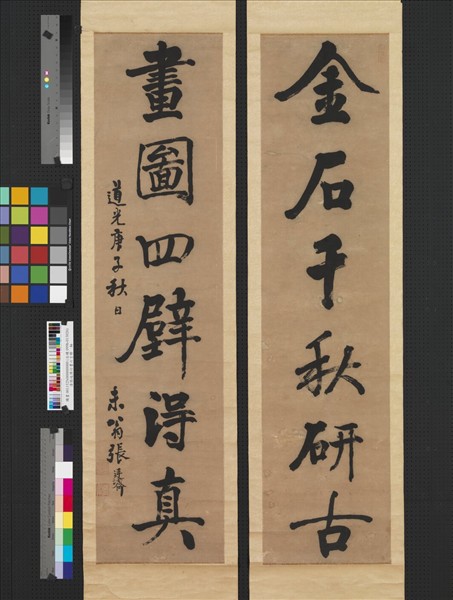 金石千秋研古
畫圖四壁得真
道光庚子秋日 未翁張廷濟